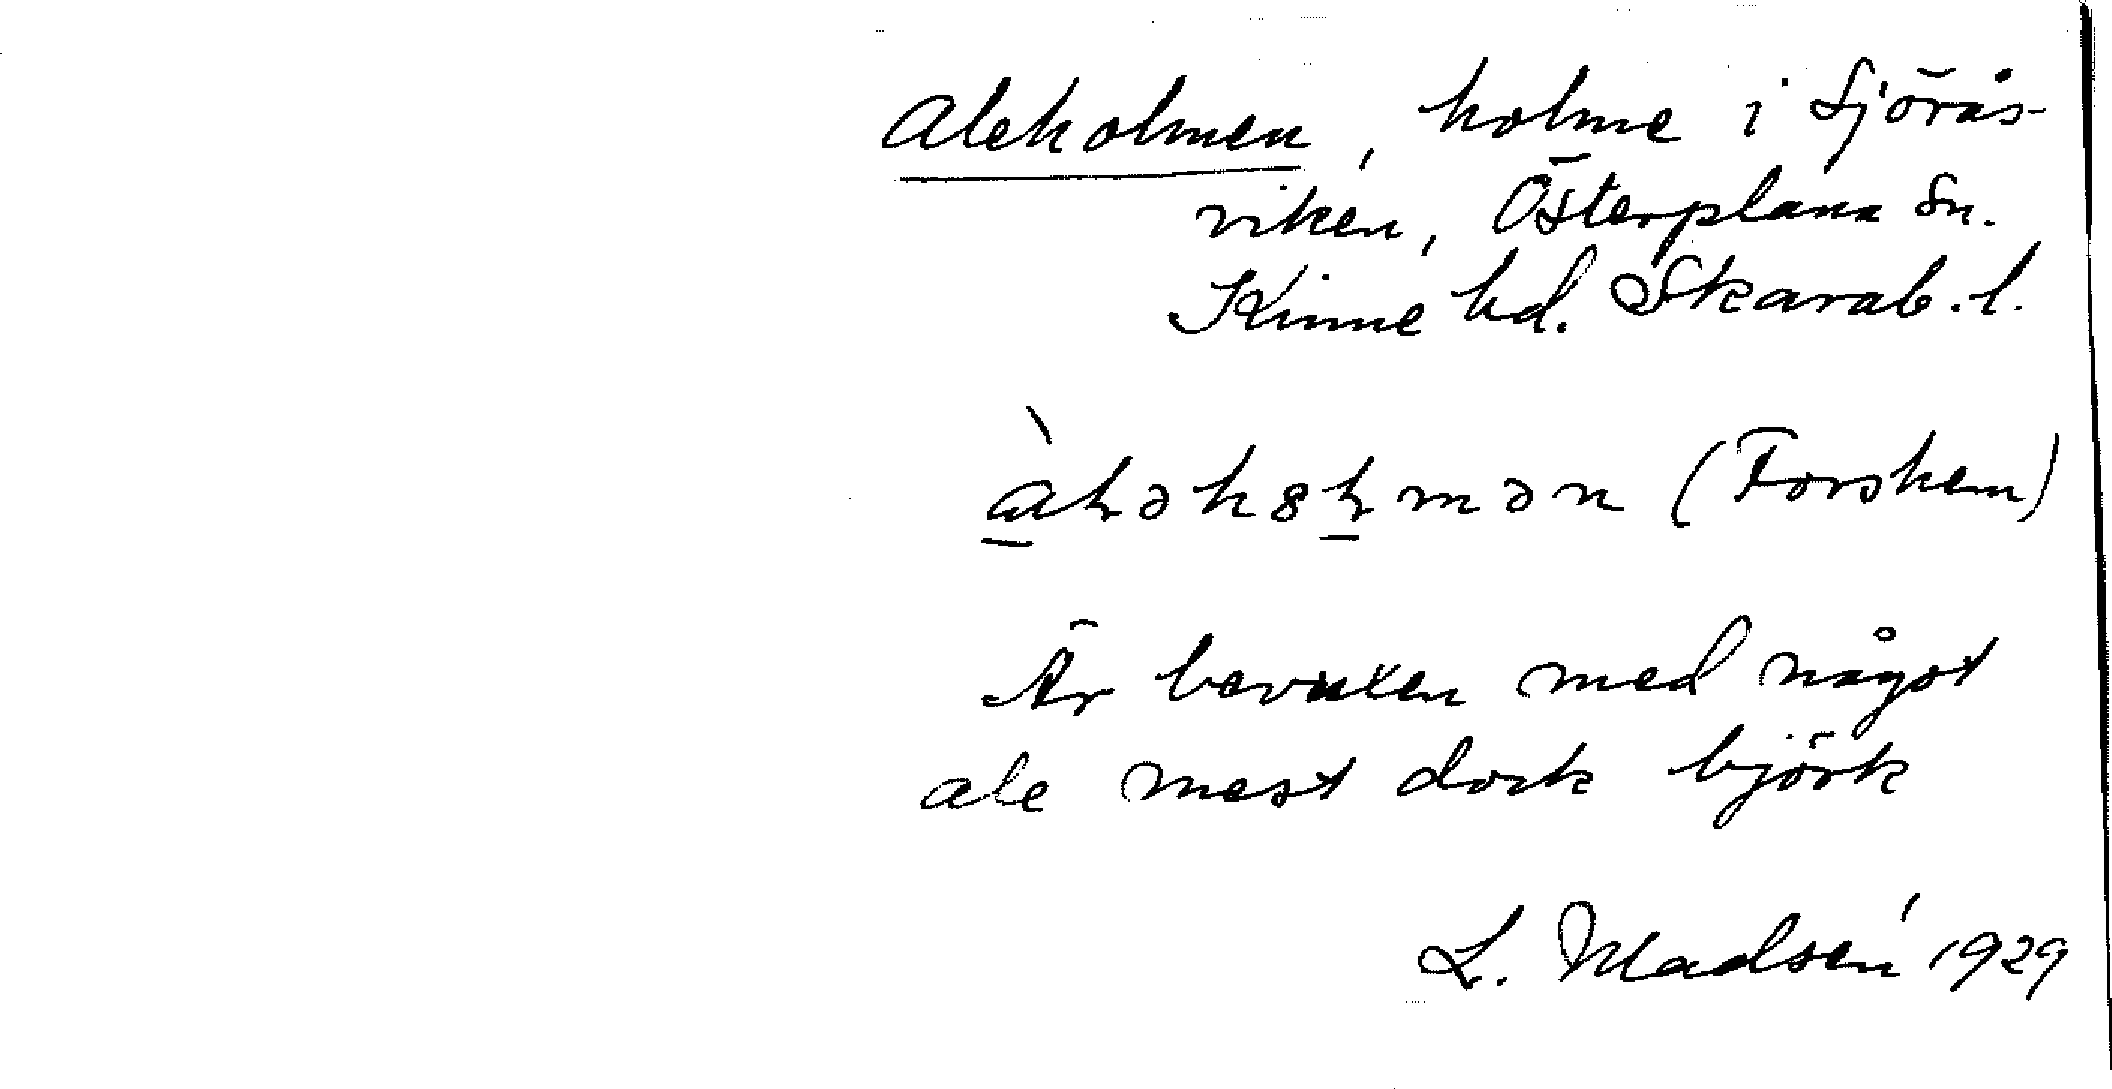 Aleholmen, holme i Sjörås-
viken, Österplana Sn.
Kinne hd. Skarab. l.
(Forshem)
Är bevuxen med något
ale mest dock björk
L. Madsén 1929